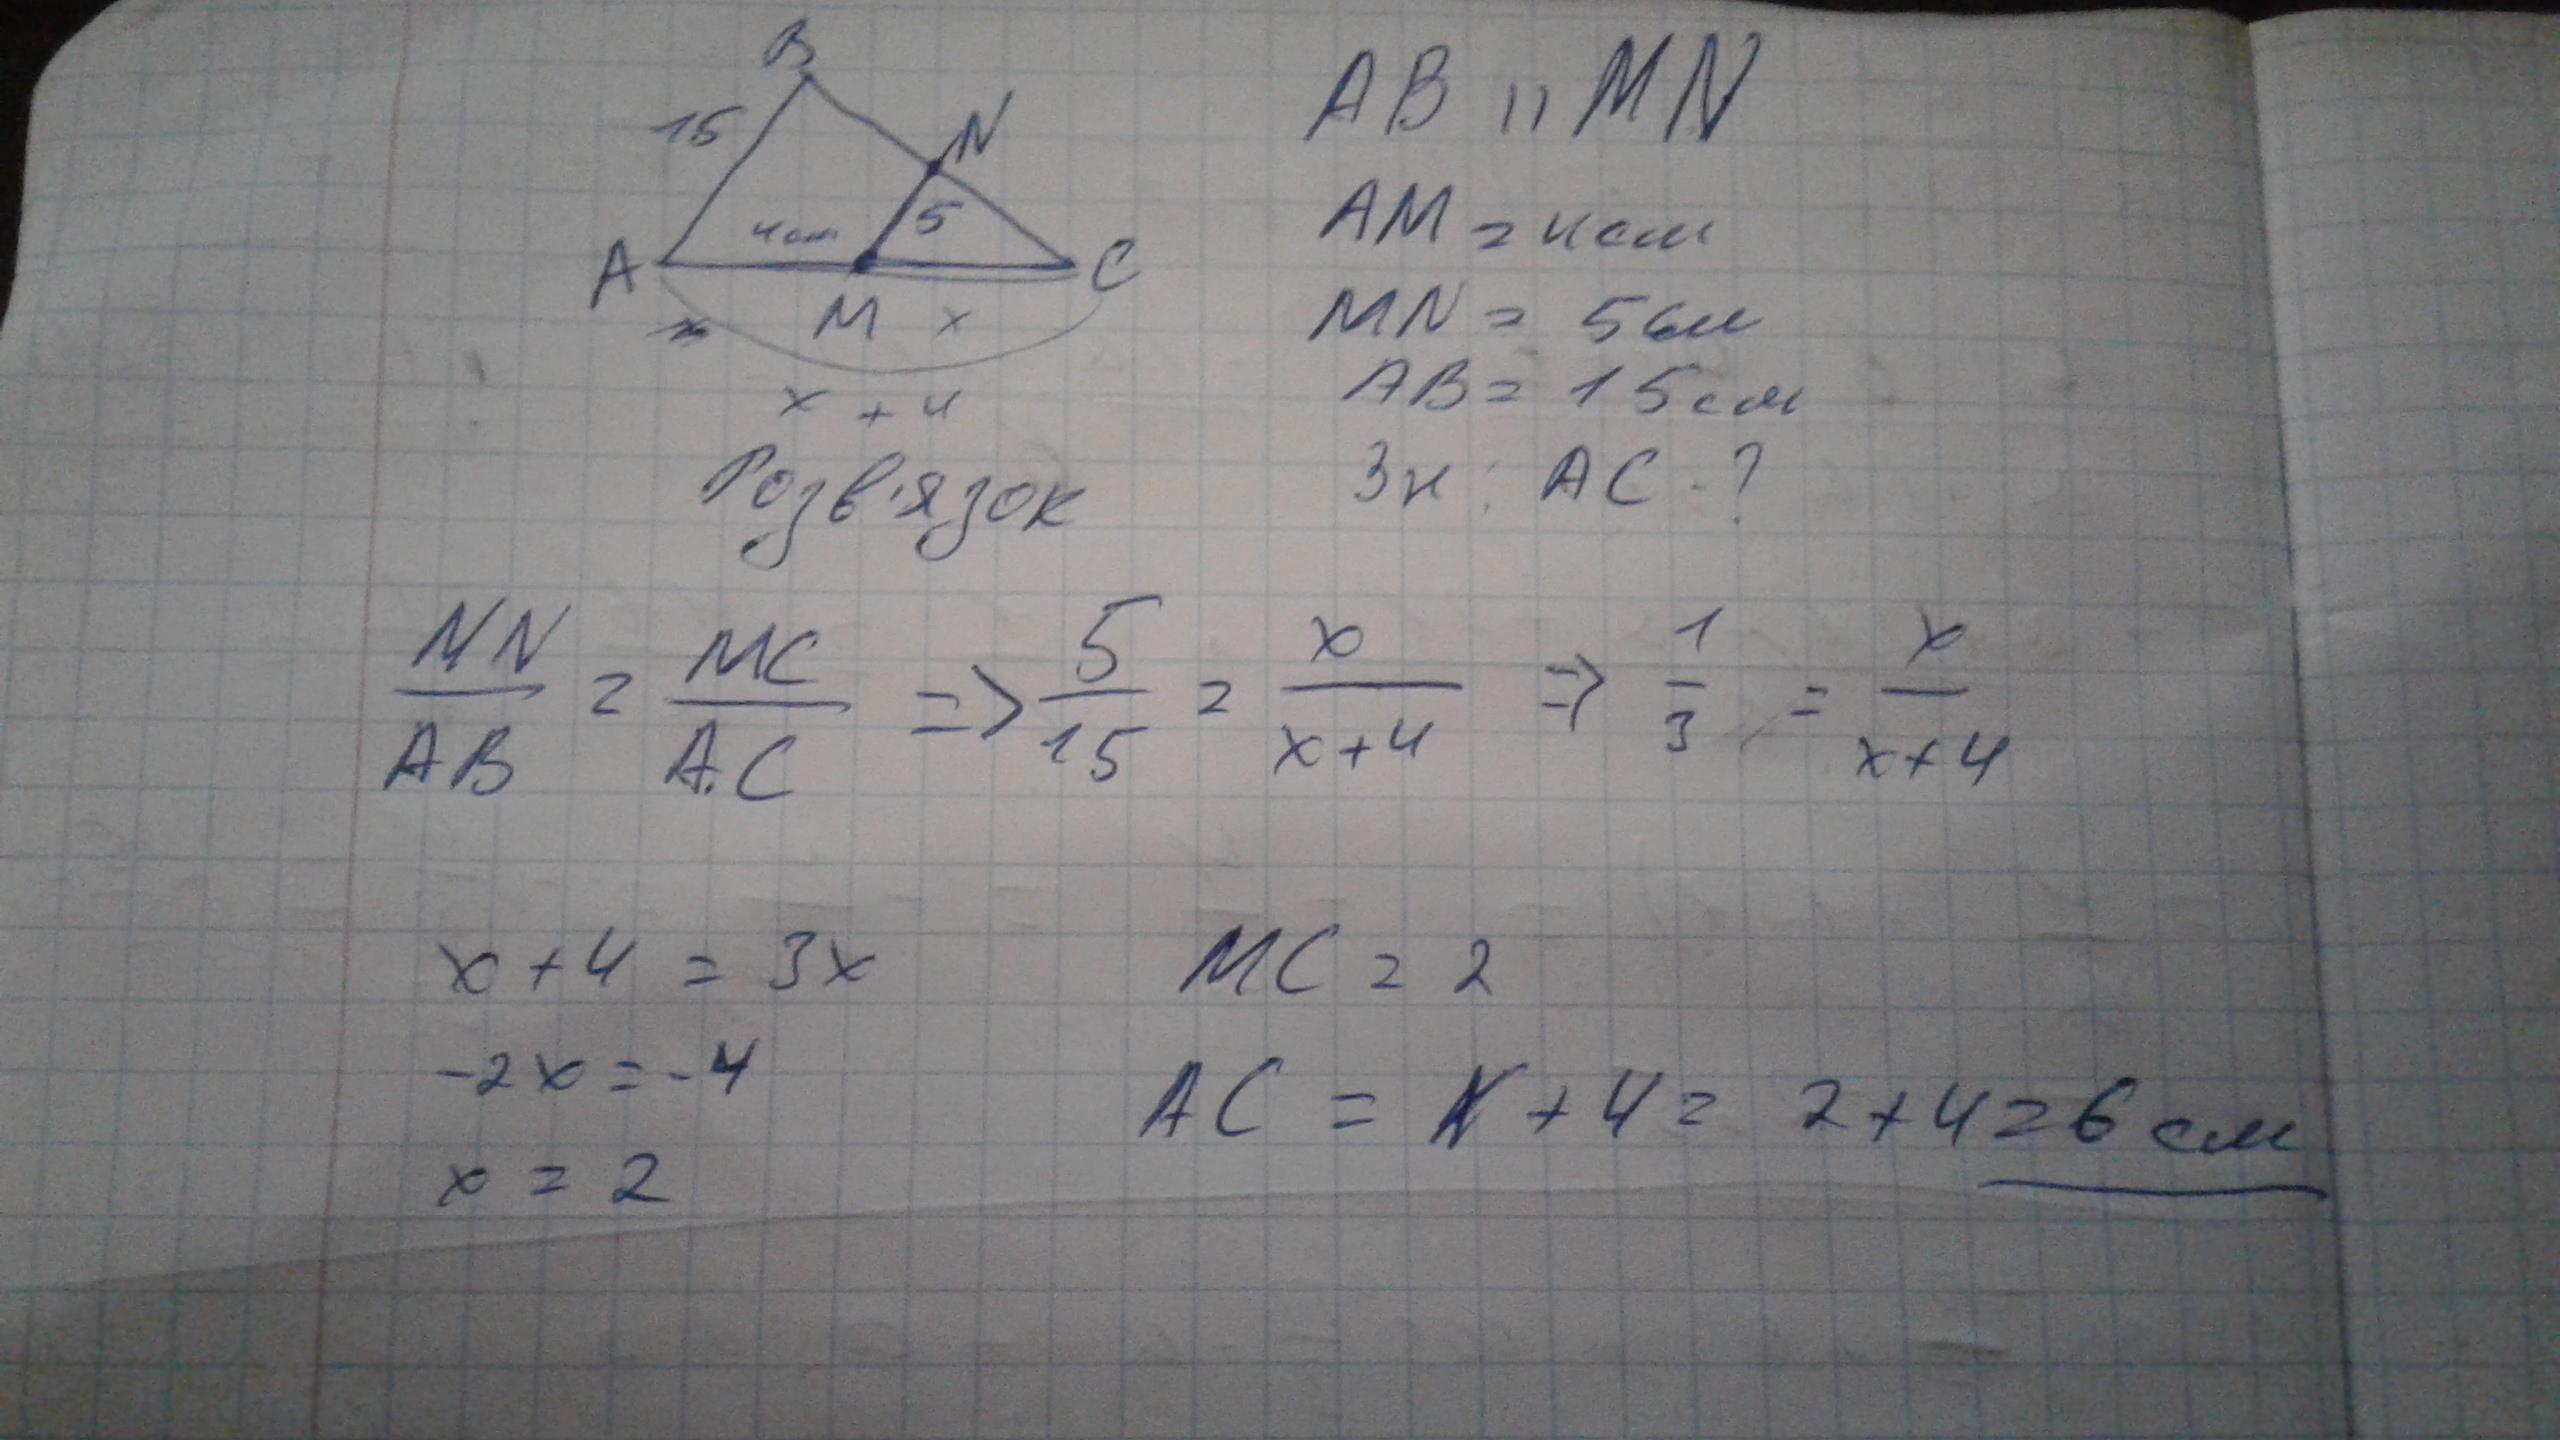 B
15
N
AB || MN
4см
5
AM = 4см
A
C
M
x
MN = 5см
x + 4
AB = 15см
Розв'язок
Зн: AC - ?
MN/AB = MC/AC => 5/15 = x/(x+4) => 1/3 = x/(x+4)
x + 4 = 3x
MC = 2
-2x = -4
AC = x + 4 = 2 + 4 = 6 см
x = 2